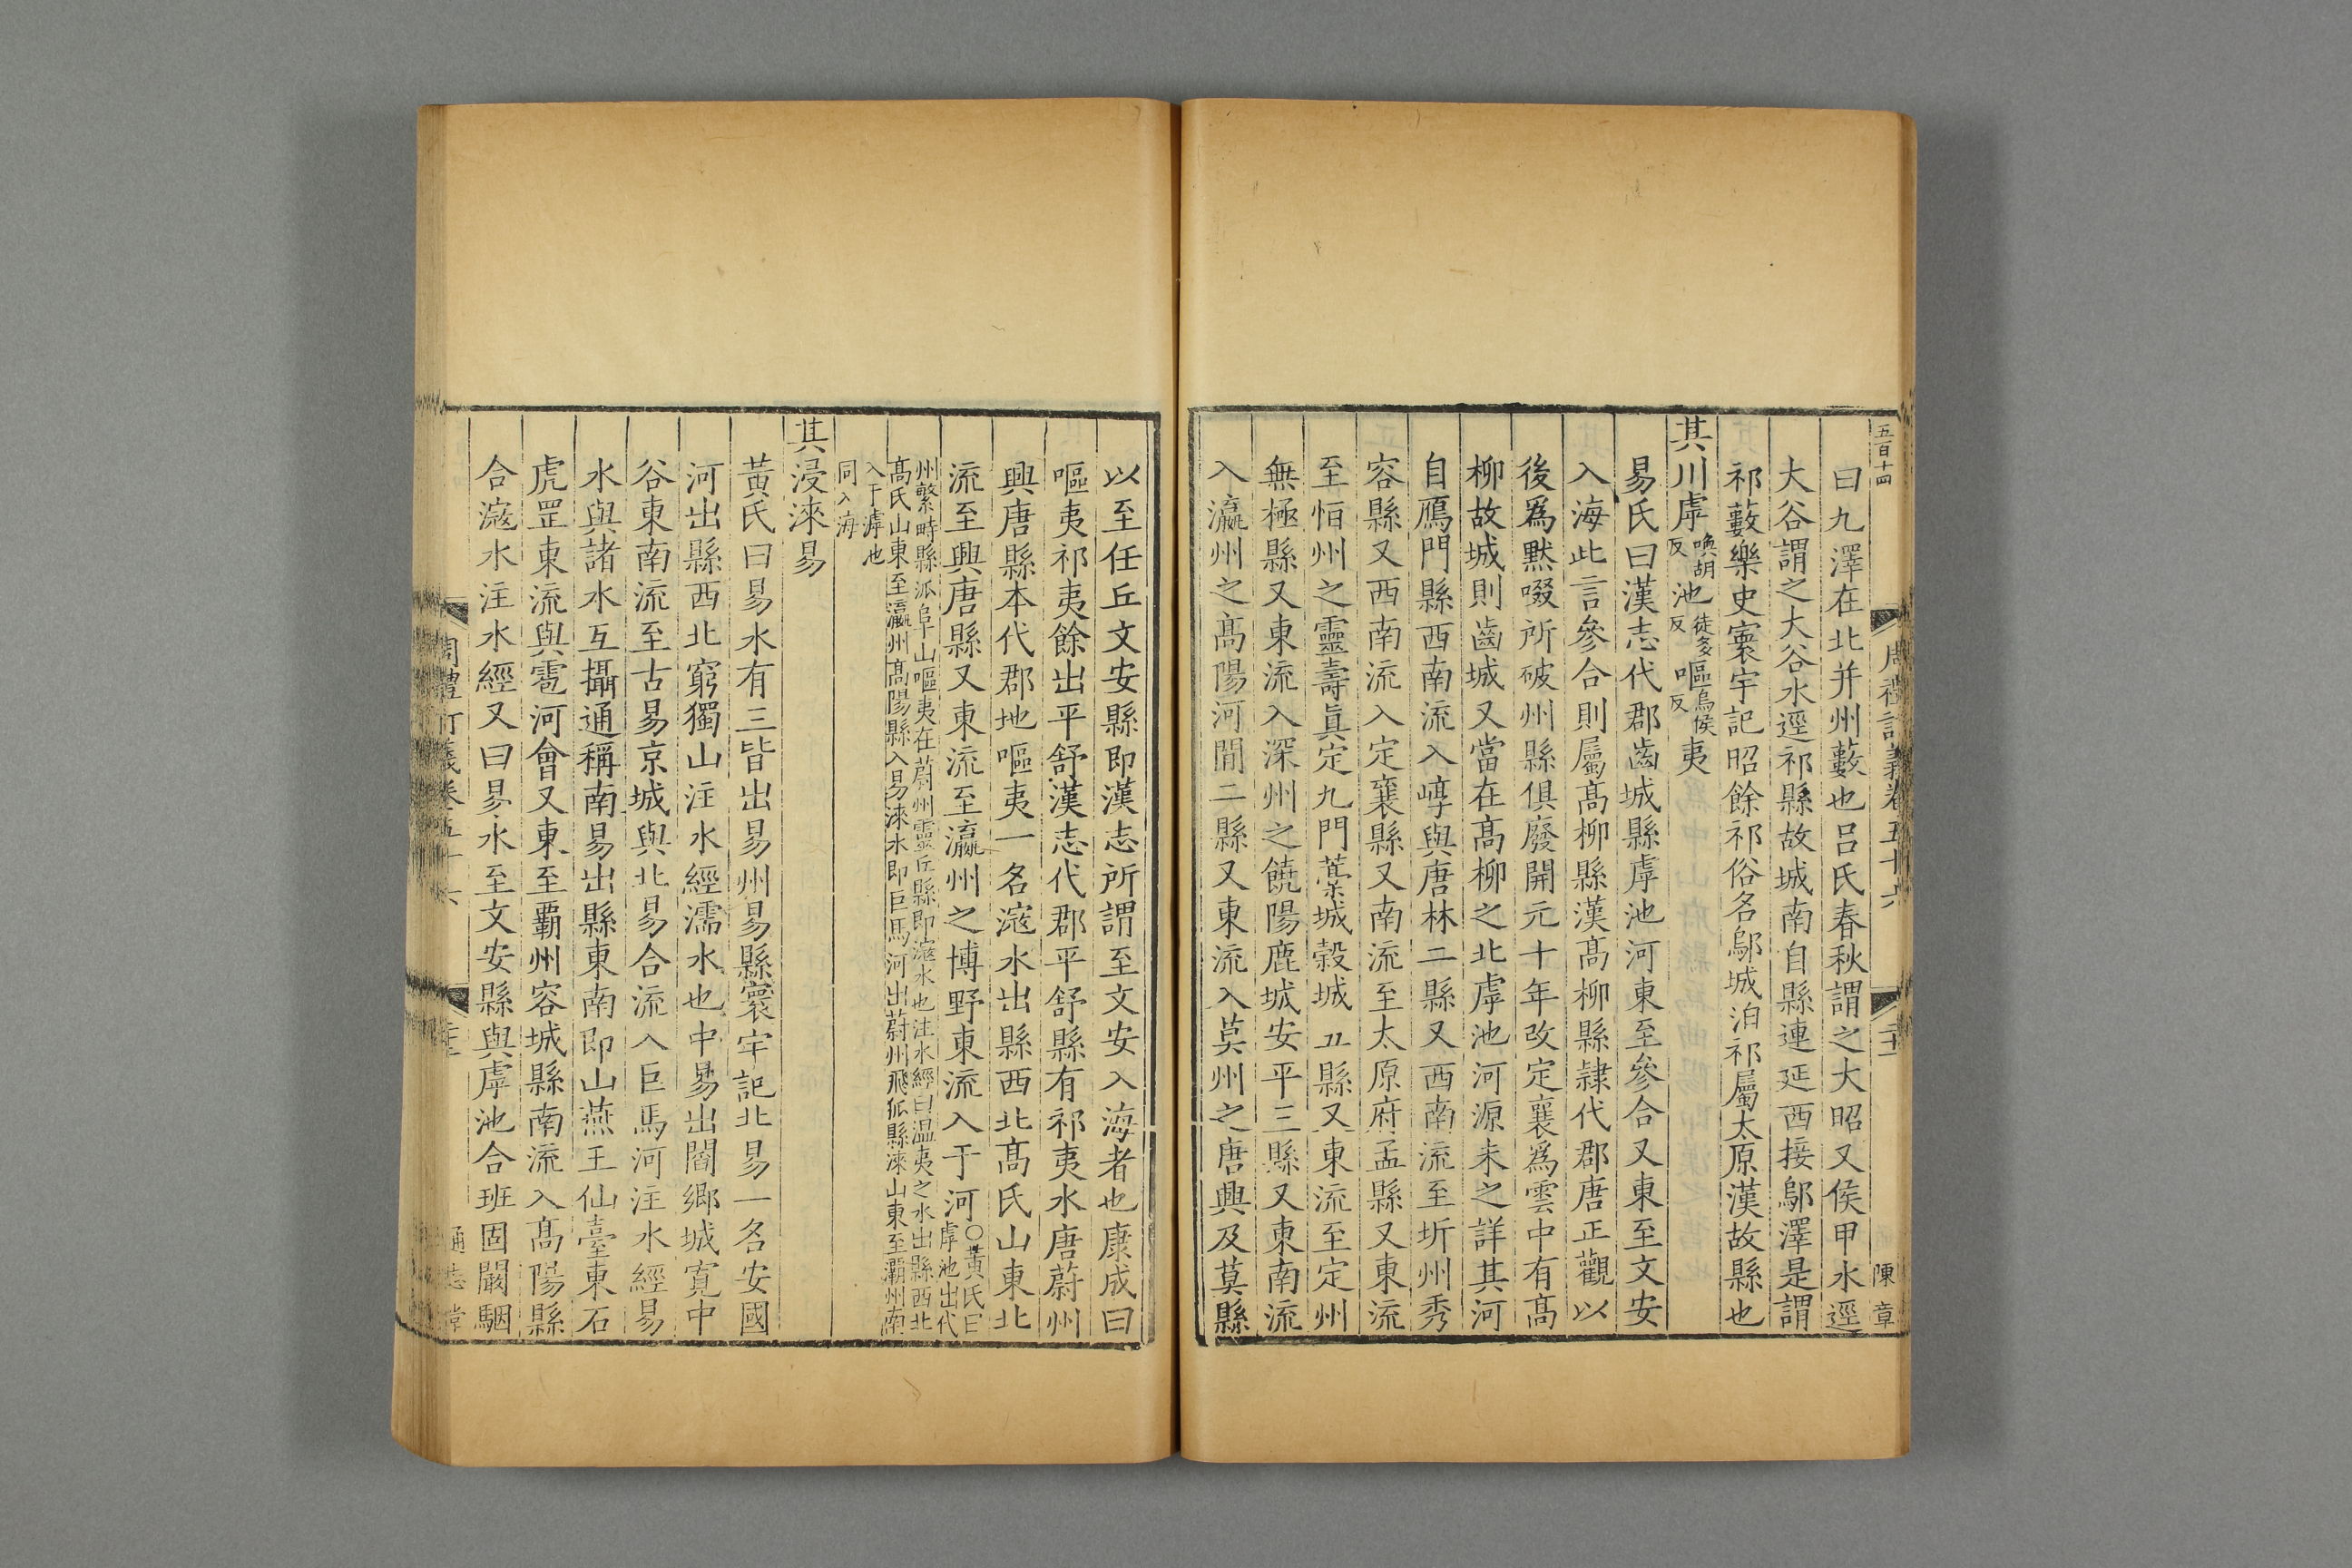 五百十四
周禮訂義卷五十六
二十一
陳章
曰九澤在北并州藪也吕氏春秋謂之大昭又侯甲水逕
大谷謂之大谷水逕祁縣故城南自縣連延西接鄔澤是謂
祁藪樂史寰宇記昭餘祁俗名鄔城泊祁屬太原漢故縣也
其川虖喚胡反池徒多反嘔烏侯反夷
易氏曰漢志代郡鹵城縣虖池河東至參合又東至文安
入海此言參合則屬髙柳縣漢髙柳縣隷代郡唐正觀以
後爲黙啜所破州縣俱廢開元十年改定襄爲雲中有髙
柳故城則鹵城又當在髙柳之北虖池河源未之詳其河
自鴈門縣西南流入崞與唐林二縣又西南流至圻州秀
容縣又西南流入定襄縣又南流至太原府盂縣又東流
至恒州之靈壽眞定九門藁城穀城五縣又東流至定州
無極縣又東流入深州之饒陽鹿城安平三縣又東南流
入瀛州之髙陽河間二縣又東流入莫州之唐興及莫縣
以至任丘文安縣即漢志所謂至文安入海者也康成曰
嘔夷祁夷餘出平舒漢志代郡平舒縣有祁夷水唐蔚州
興唐縣本代郡地嘔夷一名滱水出縣西北髙氏山東北
流至興唐縣又東流至瀛州之博野東流入于河○黃氏曰虖池出代
州繁畤縣派阜山嘔夷在蔚州靈丘縣即滱水也注水經曰温夷之水出縣西北
髙氏山東至瀛州髙陽縣入易淶水即巨馬河出蔚州飛狐縣淶山東至灞州南
入于滹池
同入海
其浸淶易
黃氏曰易水有三皆出易州易縣寰宇記北易一名安國
河出縣西北窮獨山注水經濡水也中易出閻鄉城寛中
谷東南流至古易京城與北易合流入巨馬河注水經易
水與諸水互攝通稱南易出縣東南即山燕王仙臺東石
虎罡東流與雹河會又東至覇州容城縣南流入髙陽縣
合滱水注水經又曰易水至文安縣與虖池合班固闞駰
周禮訂義卷五十六
通志堂